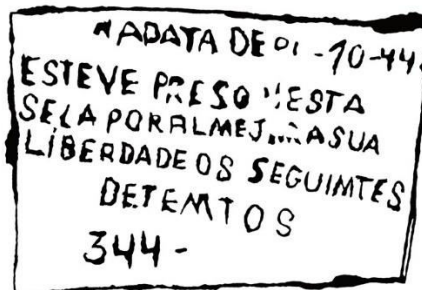 NADATA DE 01-10-44.
ESTEVE PRESO NESTA
SELA POR ALMEJAR A SUA
LIBERDADE OS SEGUIMTES
DETEMTOS
344-